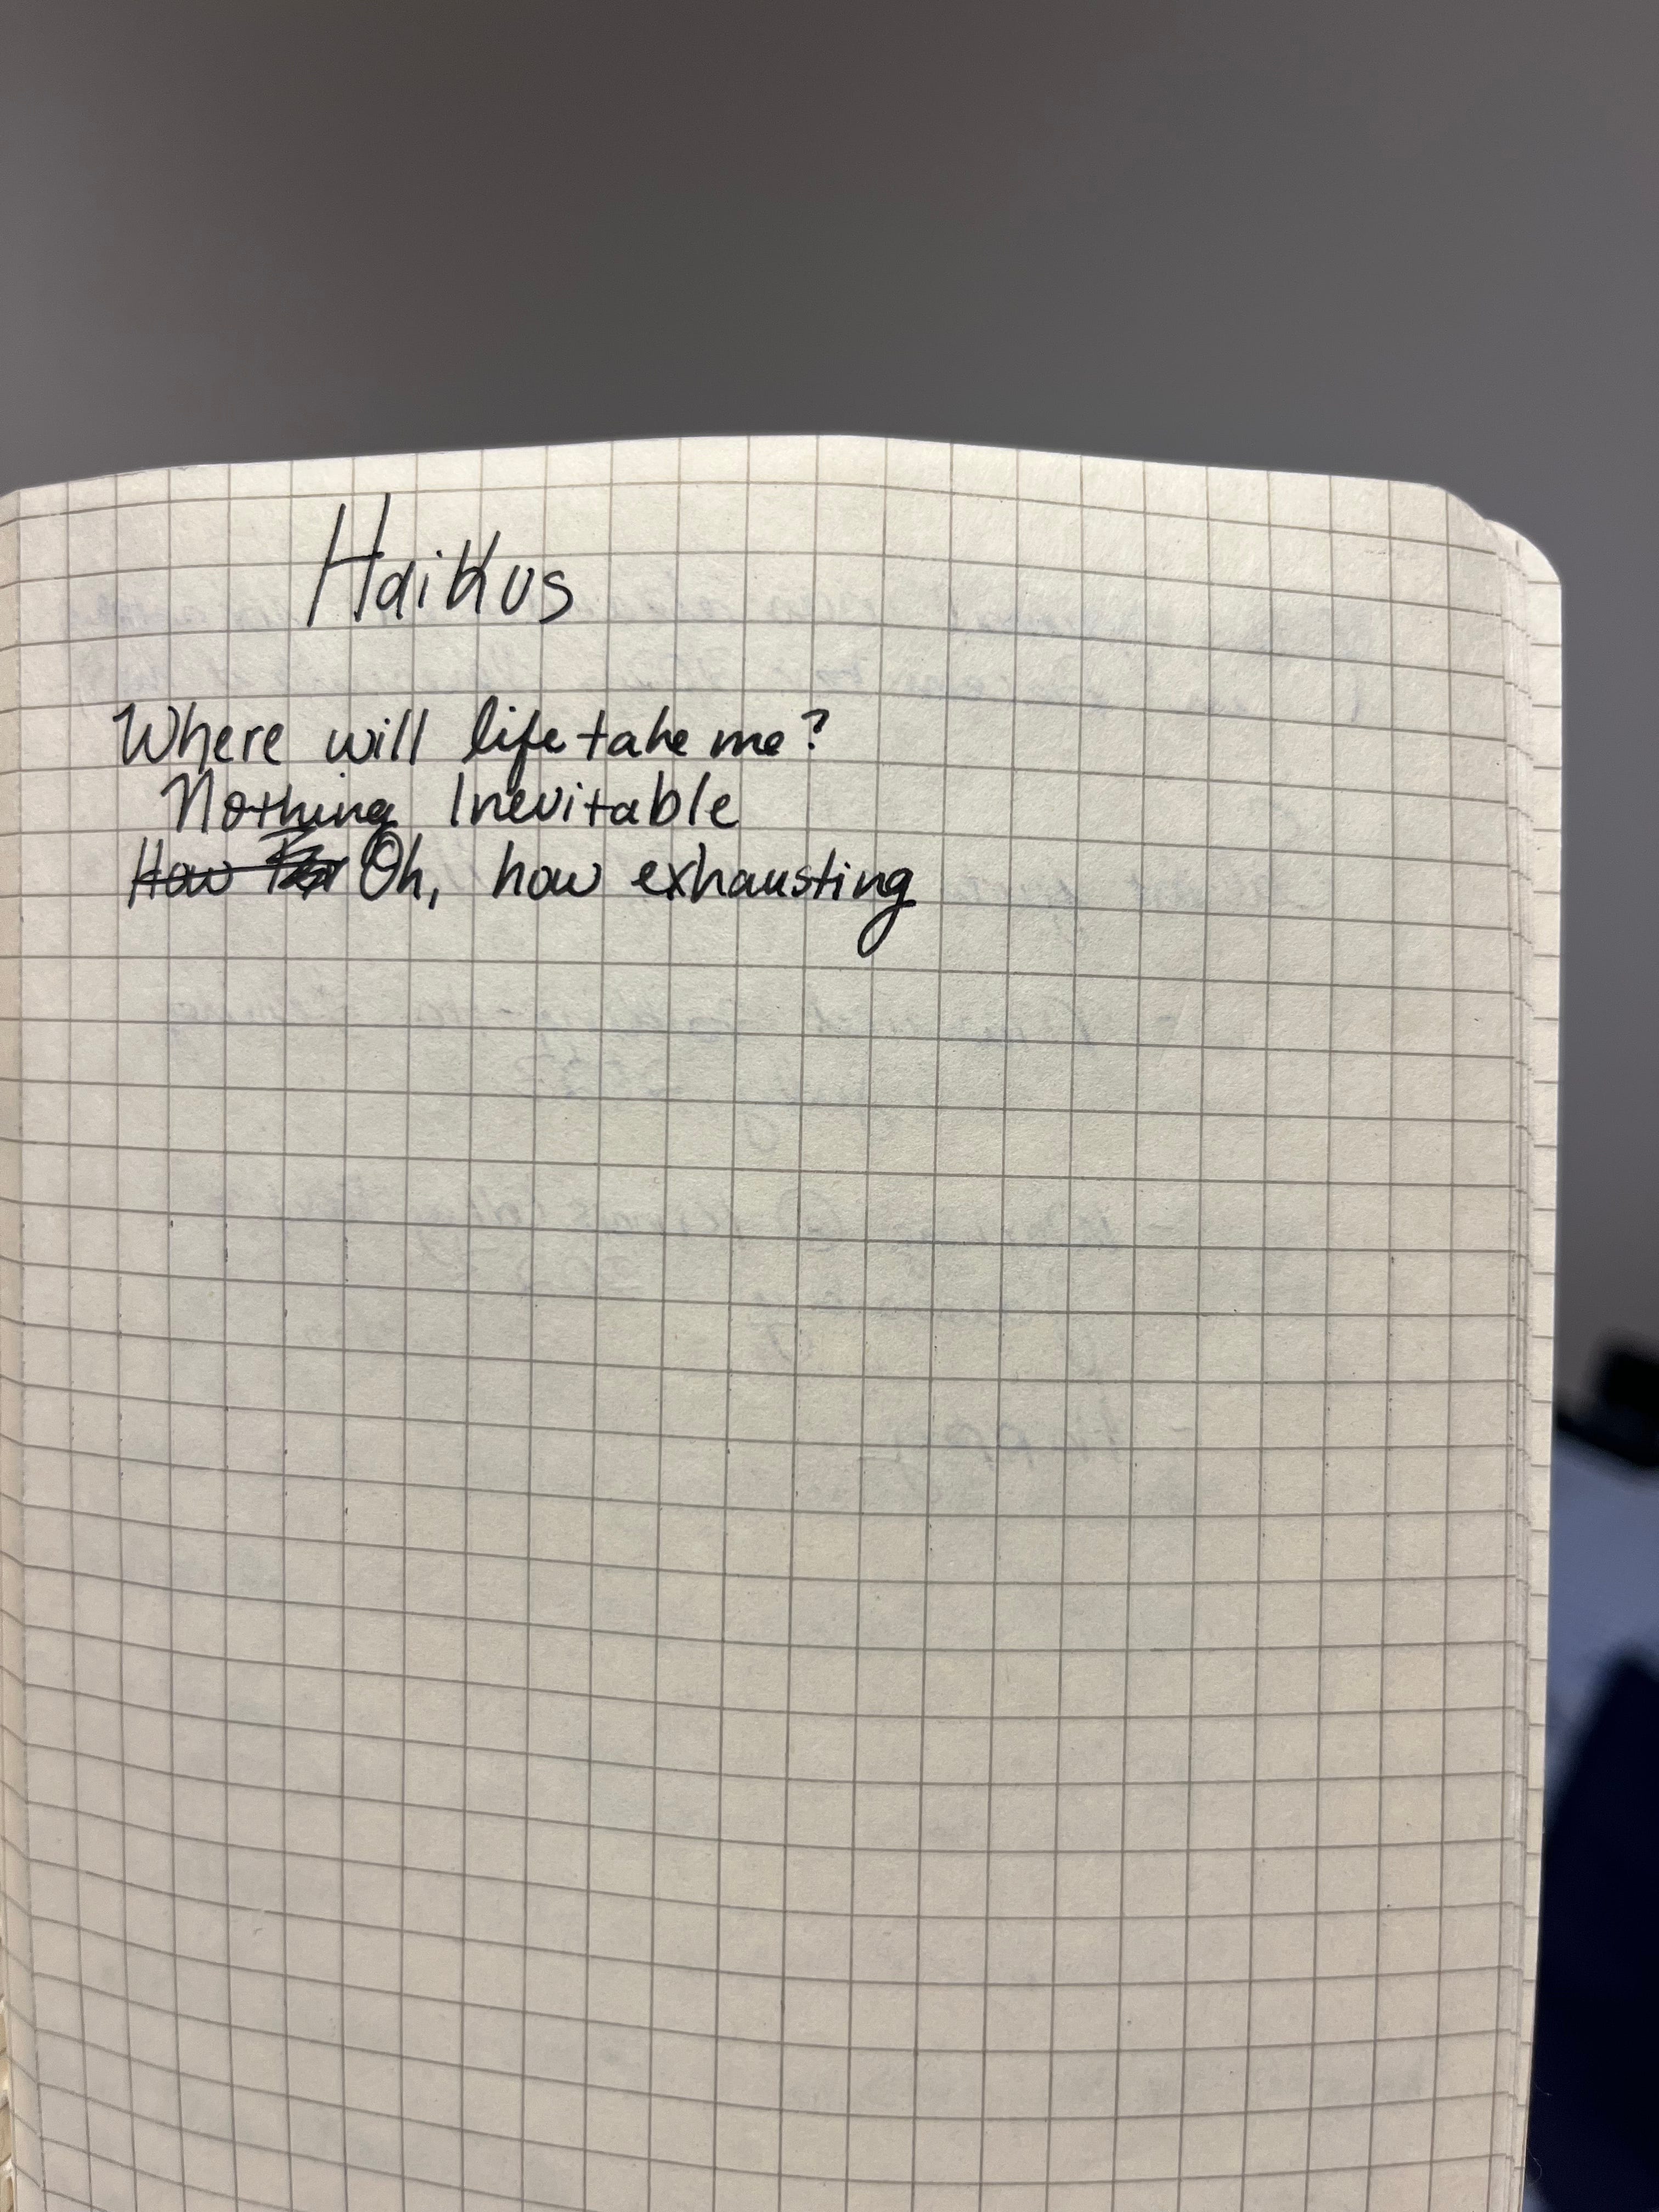 Haikus
Where will life take me?
Nothing Inevitable
How Oh, how exhausting